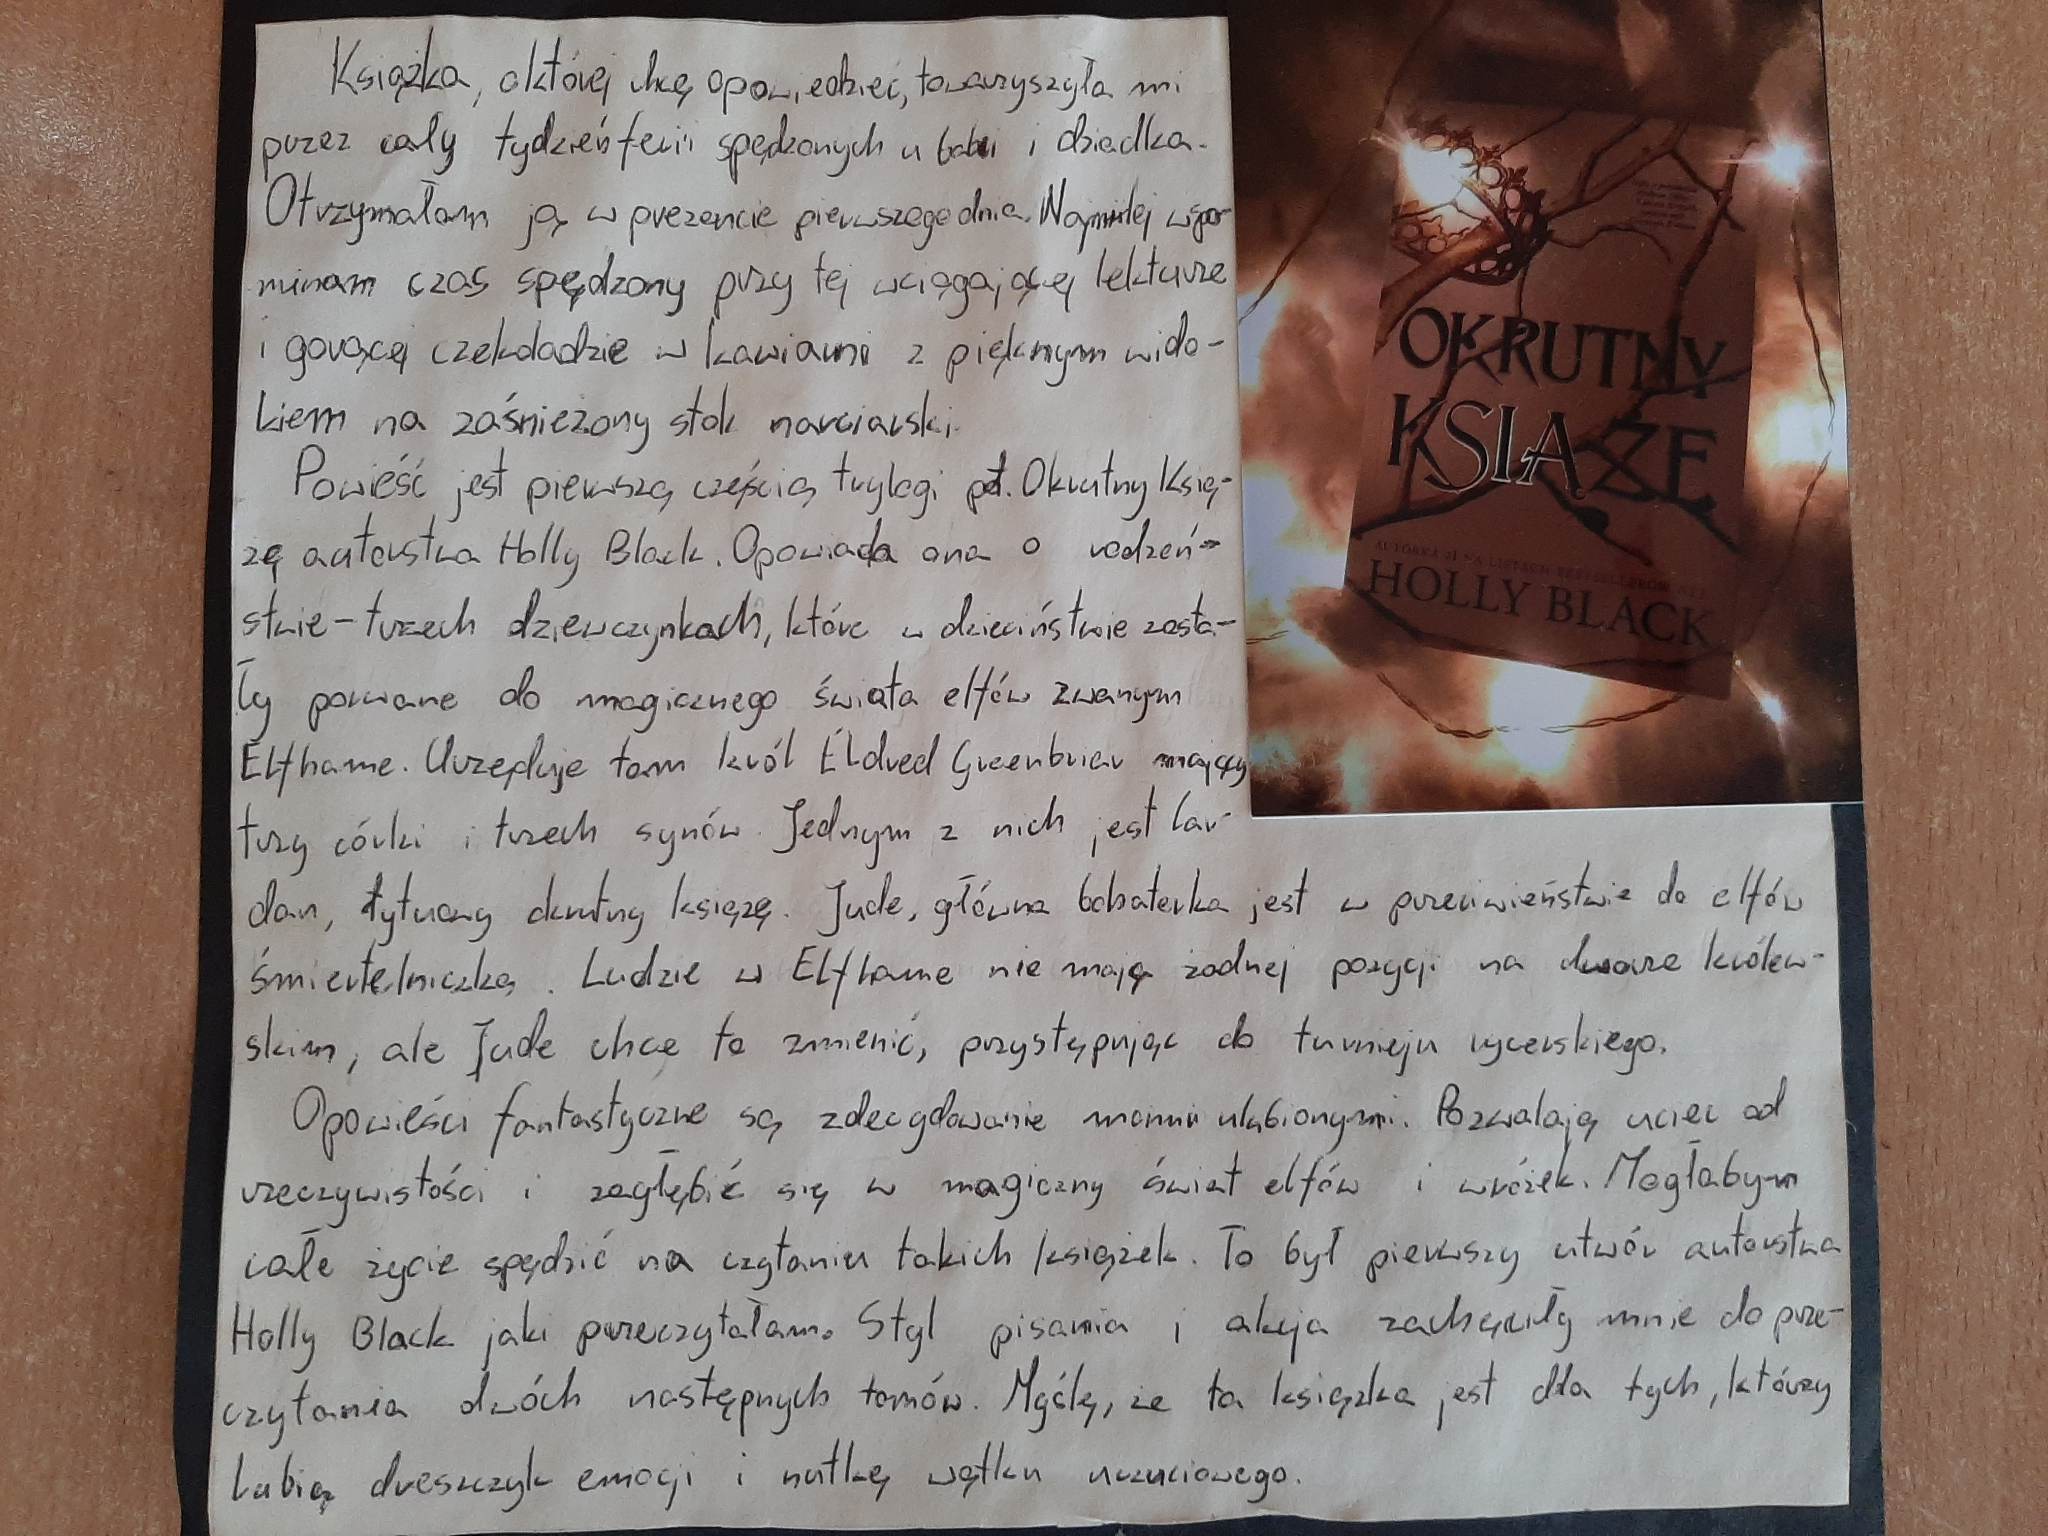 Książka, o której chcę opowiedzieć, towarzyszyła mi
przez cały tydzień ferii spędzonych u babci i dziadka.
Otrzymałam ją w prezencie pierwszego dnia. Najmilej wspo-
minam czas spędzony przy tej wciągającej lekturze
i gorącej czekoladzie w kawiarni z pięknym wido-
kiem na zaśnieżony stok narciarski.
Powieść jest pierwszą częścią trylogi pt. Okrutny Ksią-
żę autorstwa Holly Black. Opowiada ona o rodzeń-
stwie - trzech dziewczynkach, które w dzieciństwie zosta-
ły porwane do magicznego świata elfów zwanym
Elfhame. Urzęduje tam król Eldred Greenbriar mający
trzy córki i trzech synów. Jednym z nich jest Car-
dan, tytuowy okrutny książę. Jude, główna bohaterka jest w przeciwieństwie do elfów
śmiertelniczką. Ludzie w Elfhame nie mają żadnej pozycji na dworze królew-
skim, ale Jude chce to zmienić, przystępując do turnieju rycerskiego.
Opowieści fantastyczne są zdecydowanie moimi ulubionymi. Pozwalają uciec od
rzeczywistości i zagłębić się w magiczny świat elfów i wróżek. Mogłabym
całe życie spędzić na czytaniu takich książek. To był pierwszy utwór autorstwa
Holly Black jaki przeczytałam. Styl pisania i akcja zachęciły mnie do prze-
czytania dwóch następnych tomów. Myślę, że ta książka jest dla tych, którzy
lubią dreszczyk emocji i nutkę wątku uczuciowego.
OKRUTNY
KSIĄŻĘ
AUTORKA #1 NA LISTACH BESTSELLERÓW
HOLLY BLACK